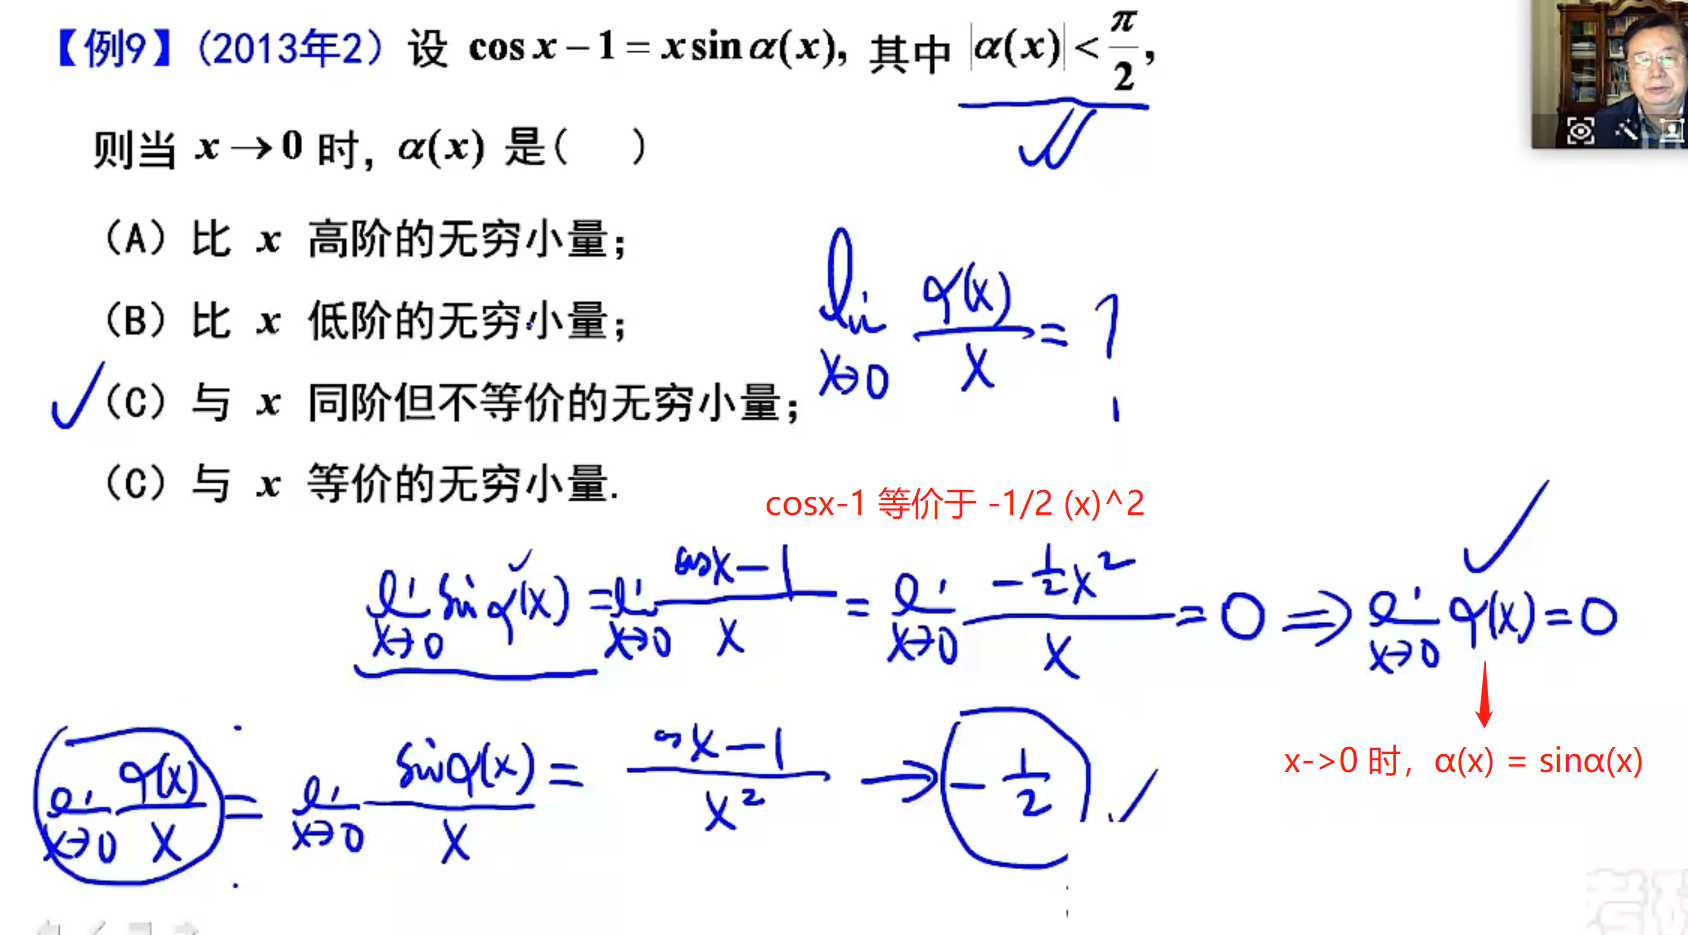 【例9】(2013年2) 设 cos x − 1 = x sin α(x), 其中 |α(x)| < π/2,
则当 x → 0 时, α(x) 是( )
(A) 比 x 高阶的无穷小量;
(B) 比 x 低阶的无穷小量;
(C) 与 x 同阶但不等价的无穷小量;
(C) 与 x 等价的无穷小量.
lim x→0 α(x)/x = ?
cosx-1 等价于 -1/2 (x)^2
lim x→0 sin α(x) = lim x→0 (cosx − 1)/x = lim x→0 (−1/2 x²)/x = 0 ⇒ lim x→0 α(x) = 0
x->0 时，α(x) = sinα(x)
lim x→0 α(x)/x = lim x→0 sinα(x)/x = (cosx − 1)/x² → −1/2
考研